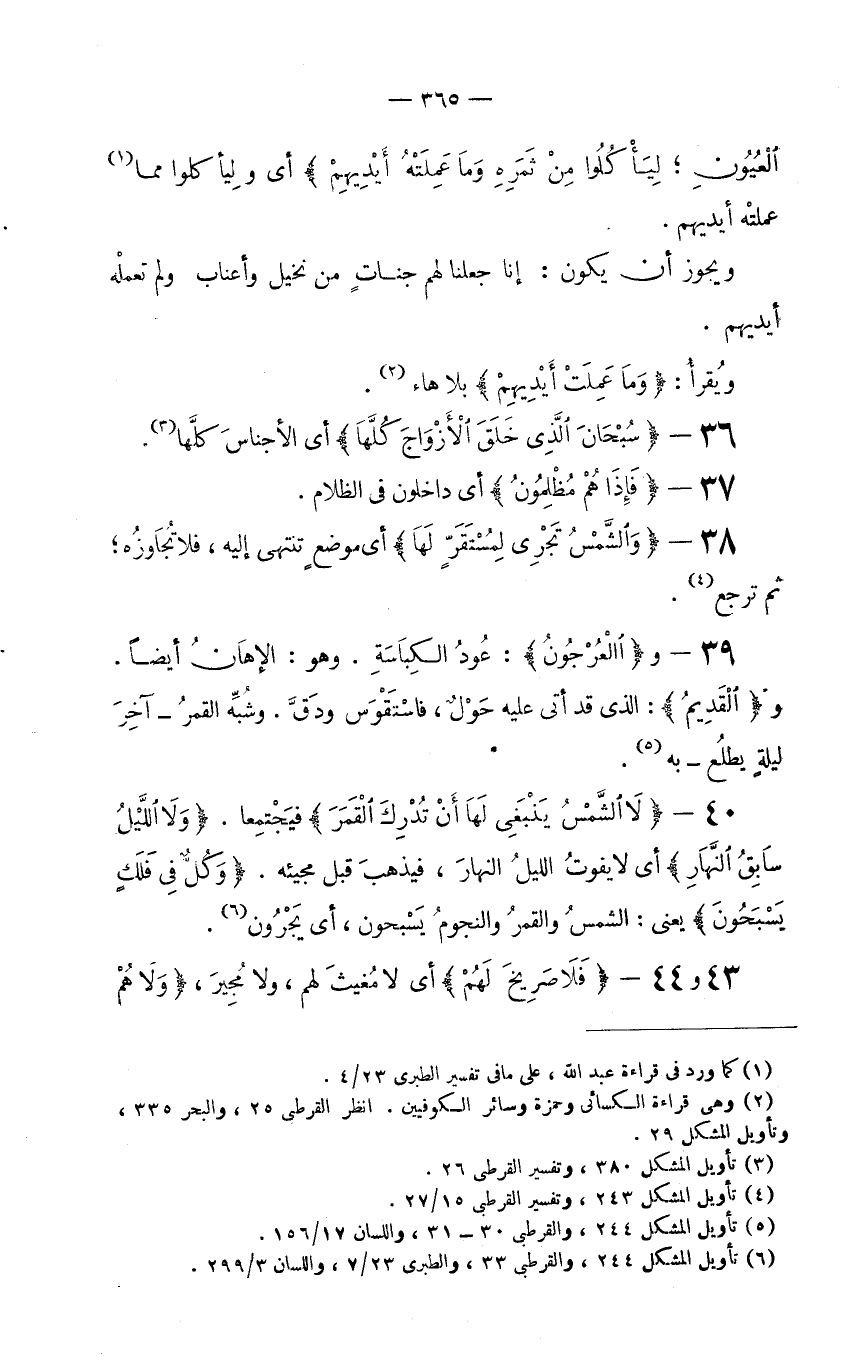 — ٣٦٥ —
ٱلْعُيُونِ ؛ لِيَأْكُلُوا مِنْ ثَمَرِهِ وَمَا عَمِلَتْهُ أَيْدِيهِمْ ﴾ أى و لِيأكلوا مما(١)
عملتْه أيديهم .
ويجوز أن يكون : إنا جعلنا لهم جنـات ٍ من نخيل وأعناب ولم تعملْه
أيديهم .
ويُقرأ : ﴿ وَمَا عَمِلَتْ أَيْدِيهِمْ ﴾ بلا هاء (٢) .
٣٦ — ﴿ سُبْحَانَ ٱلَّذِى خَلَقَ ٱلْأَزْوَاجَ كُلَّهَا ﴾ أى الأجناسَ كلَّها(٣) .
٣٧ — ﴿ فَإِذَا هُمْ مُظْلِمُونُ ﴾ أى داخلون فى الظلام .
٣٨ — ﴿ وَٱلشَّمْسُ تَجْرِى لِمُسْتَقَرٍّ لَهَا ﴾ أى موضعٍ تنتهى إليه ، فلا تُجَاوزُه ؛
ثم ترجع (٤) .
٣٩ — و ﴿ ٱالْعُرْجُونُ ﴾ : عُودُ الـكِبَاسَةِ . وهو : الإهَانُ أيضـاً .
و ﴿ ٱلْقَدِيمُ ﴾ : الذى قد أتى عليه حَوْلٌ ، فاسْتَقْوَس ودَقَّ . وشُبِّه القمرُ ـ آخِرَ
ليلةٍ يطلُع ـ به (٥) .
٤٠ — ﴿ لَا ٱلشَّمْسُ يَنْبَغِى لَهَا أَنْ تُدْرِكَ ٱلْقَمَرَ ﴾ فيَجْتمِعا . ﴿ وَلَا ٱللَّيْلُ
سَابِقُ ٱلنَّهَارِ ﴾ أى لا يفوتُ الليلُ النهارَ ، فيذهبَ قبل مجيئه . ﴿ وَكُلٌّ فِى فَلَكٍ
يَسْبَحُونَ ﴾ يعنى : الشمسُ والقمرُ والنجومُ يَسْبحون ، أى يَجْرُون(٦) .
٤٣ و ٤٤ — ﴿ فَلَا صَرِيخَ لَهُمْ ﴾ أى لا مُغيثَ لهم ، ولا مُجِيرَ ، ﴿ وَلَا هُمْ
(١) كما ورد فى قراءة عبد الله ، على مافى تفسير الطبرى ٢٣/٤ .
(٢) وهى قراءة الـكسائى وحمزة وسائر الـكوفيين . انظر القرطى ٢٥ ، والبحر ٣٣٥ ،
وتأويل المشكل ٢٩ .
(٣) تأويل المشكل ٣٨٠ ، وتفسير القرطى ٢٦ .
(٤) تأويل المشكل ٢٤٣ ، وتفسير القرطبى ٢٧/١٥ .
(٥) تأويل المشكل ٢٤٤ ، والقرطبى ٣٠ – ٣١ ، واللسان ١٥٦/١٧ .
(٦) تأويل المشكل ٢٤٤ ، والقرطبى ٣٣ ، والطبرى ٧/٢٣ ، واللسان ٢٩٩/٣ .